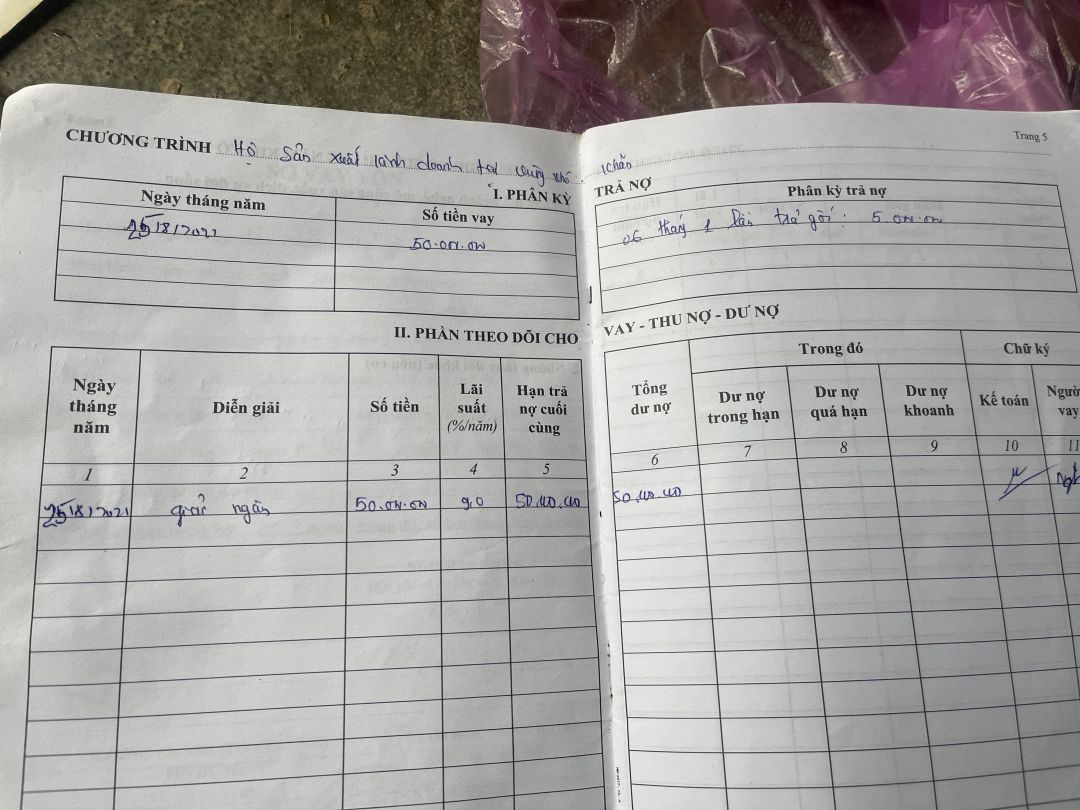 Trang 5
CHƯƠNG TRÌNH Hộ sản xuất kinh doanh tại vùng khó khăn
I. PHÂN KỲ TRẢ NỢ
Ngày tháng năm Số tiền vay Phân kỳ trả nợ
25/8/2021 50.000.000 06 tháng 1 lần trả gốc: 5.000.000
II. PHẦN THEO DÕI CHO VAY - THU NỢ - DƯ NỢ
Ngày tháng năm Diễn giải Số tiền Lãi suất (%/năm) Hạn trả nợ cuối cùng Tổng dư nợ Trong đó Chữ ký
Dư nợ trong hạn Dư nợ quá hạn Dư nợ khoanh Kế toán Người vay
1 2 3 4 5 6 7 8 9 10 11
25/8/2021 giải ngân 50.000.000 9,0 50.000.000 50.000.000